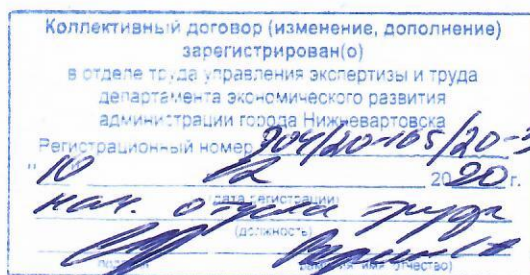 Коллективный договор (изменение, дополнение)
зарегистрирован(о)
в отделе труда управления экспертизы и труда
департамента экономического развития
администрации города Нижневартовска
Регистрационный номер 904/20-165/20-3
" 10 " 12 2020 г.
(дата регистрации)
нач. отдела труда
(должность)
подпись фамилия имя отчество)